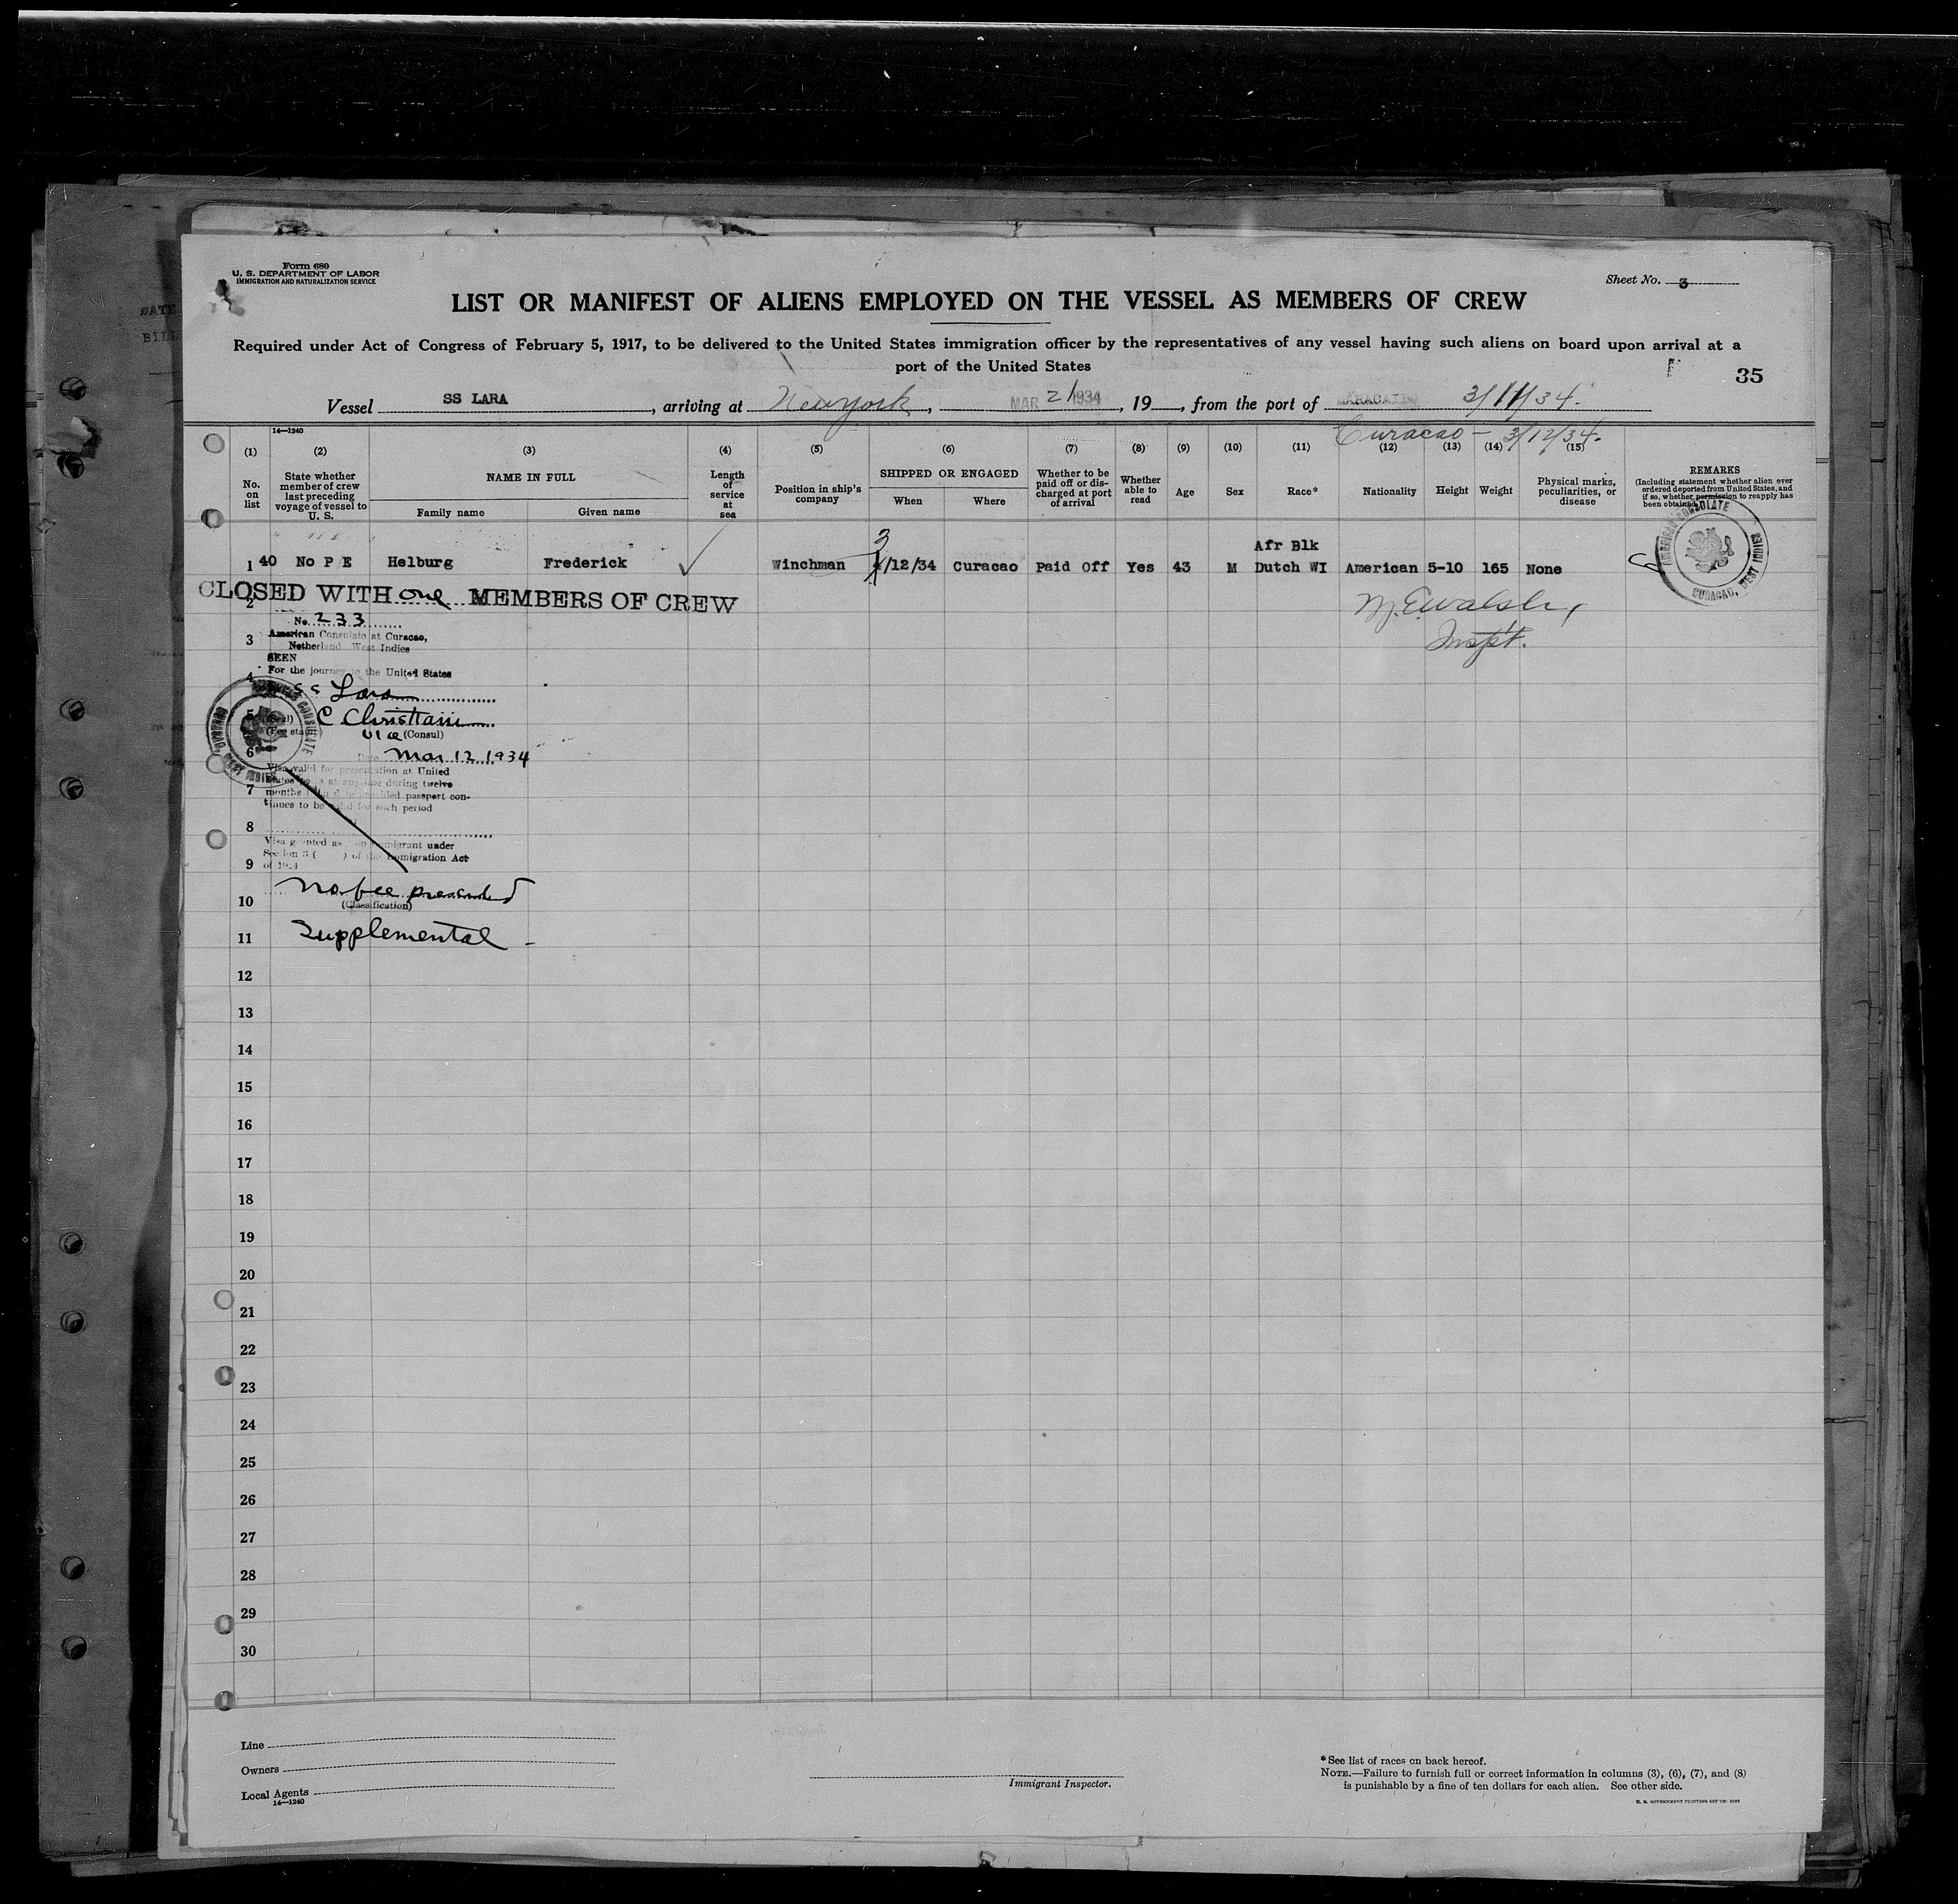 Form 680
U. S. DEPARTMENT OF LABOR
IMMIGRATION AND NATURALIZATION SERVICE
Sheet No. 3
LIST OR MANIFEST OF ALIENS EMPLOYED ON THE VESSEL AS MEMBERS OF CREW
Required under Act of Congress of February 5, 1917, to be delivered to the United States immigration officer by the representatives of any vessel having such aliens on board upon arrival at a
port of the United States
35
Vessel SS LARA, arriving at New York, MAR 21 1934, 19, from the port of MARACAIBO 3/11/34.
Curacao - 3/12/34.
14—1240
(1) (2) (3) (4) (5) (6) (7) (8) (9) (10) (11) (12) (13) (14) (15)
No. on list
State whether member of crew last preceding voyage of vessel to U. S.
NAME IN FULL
Family name
Given name
Length of service at sea
Position in ship's company
SHIPPED OR ENGAGED
When
Where
Whether to be paid off or discharged at port of arrival
Whether able to read
Age
Sex
Race*
Nationality
Height
Weight
Physical marks, peculiarities, or disease
REMARKS
(Including statement whether alien ever ordered deported from United States, and if so, whether permission to reapply has been obtained)
AMERICAN CONSULATE
CURACAO, WEST INDIES
3
Afr Blk
1 40 No P E Helburg Frederick Winchman /12/34 Curacao Paid Off Yes 43 M Dutch WI American 5-10 165 None
CLOSED WITH one MEMBERS OF CREW
M. E. Walsh,
Inspt.
2
No. 233
3
American Consulate at Curacao,
Netherland West Indies
SEEN
For the journey to the United States
4
SS Lara
5
(Seal) C Christiani
(Fee stamp) Vice (Consul)
6
Date Mar 12 1934
AMERICAN CONSULATE
CURACAO, WEST INDIES
Visa valid for presentation at United
States at any time during twelve
7
months provided passport con-
tinues to be valid for such period
8
Visa granted as non immigrant under
Section 3 ( ) of the Immigration Act
9
of 1924
No fee prescribed
10
(Classification)
11
Supplemental -
12
13
14
15
16
17
18
19
20
21
22
23
24
25
26
27
28
29
30
Line
Owners
Local Agents
14—1240
Immigrant Inspector.
*See list of races on back hereof.
NOTE.—Failure to furnish full or correct information in columns (3), (6), (7), and (8)
is punishable by a fine of ten dollars for each alien. See other side.
U. S. GOVERNMENT PRINTING OFFICE
DATE